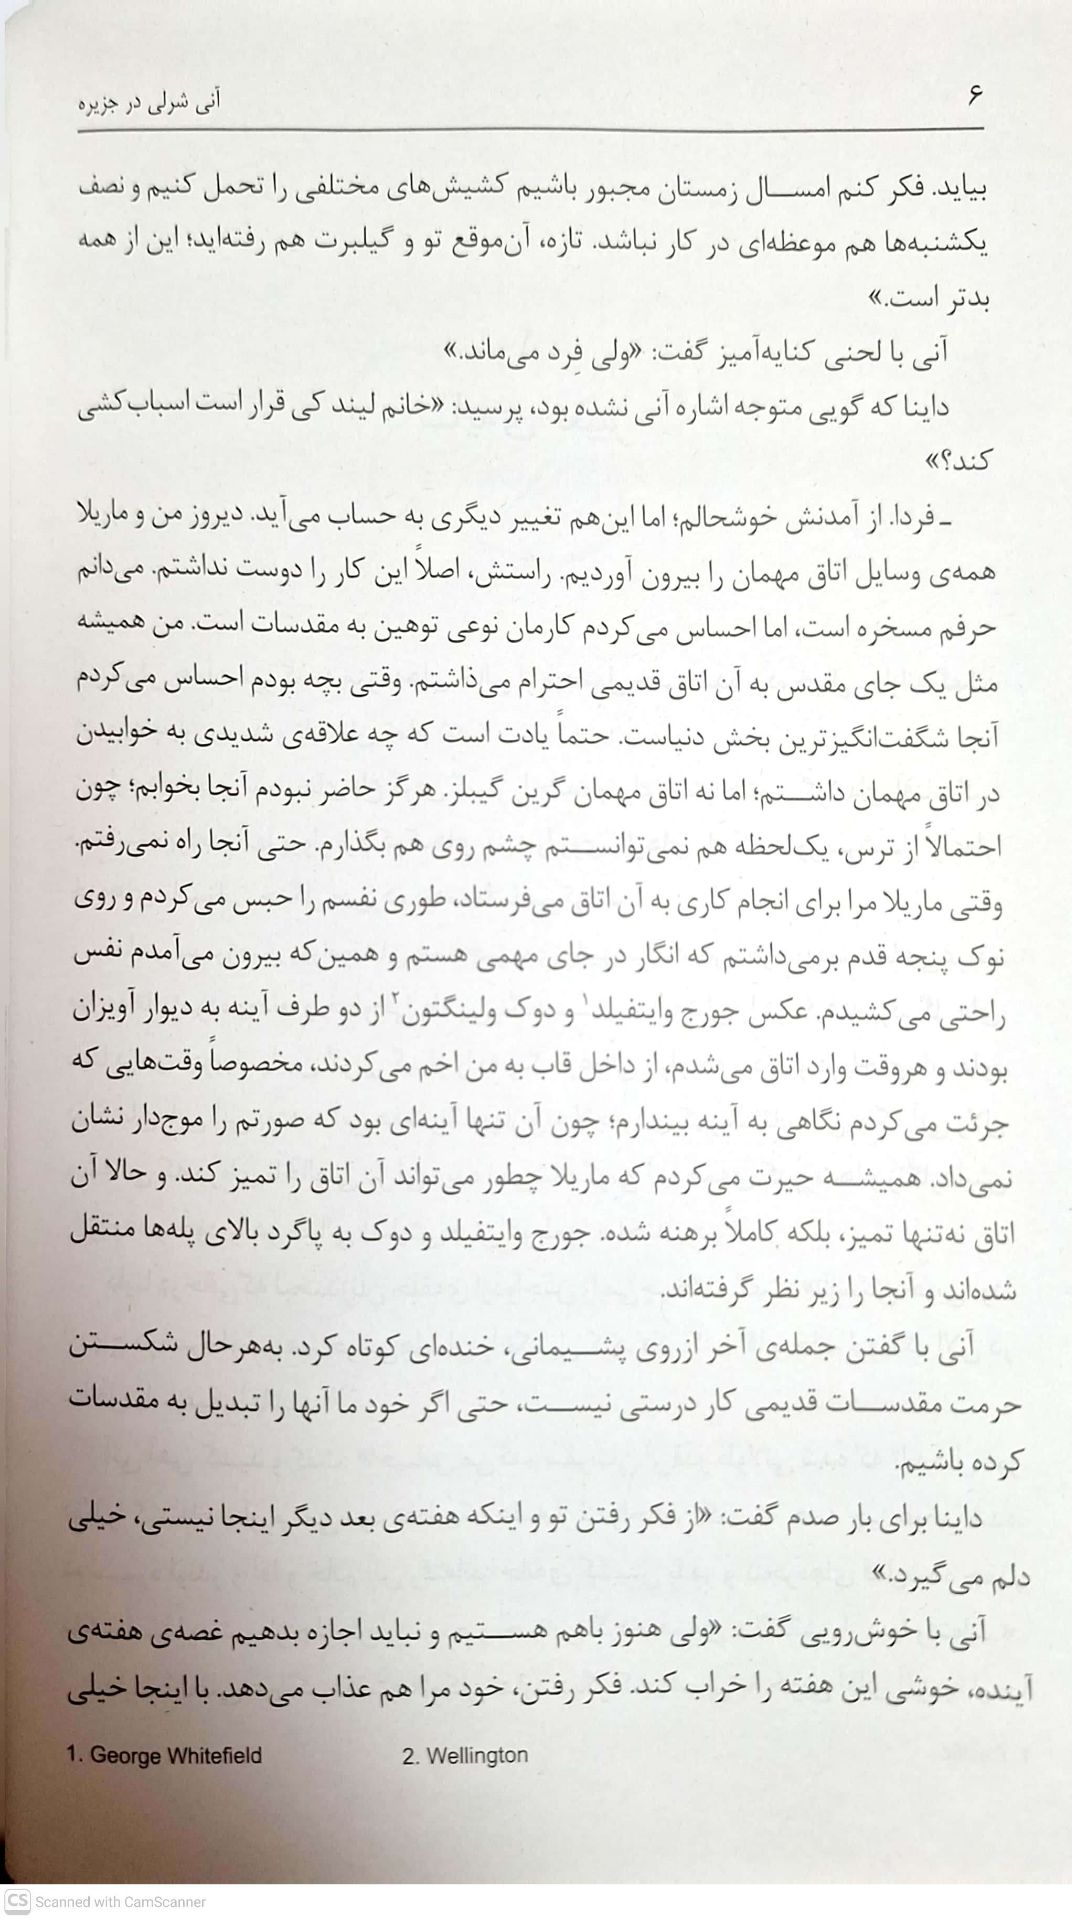 ۶
آنی شرلی در جزیره
بیاید. فکر کنم امسال زمستان مجبور باشیم کشیش‌های مختلفی را تحمل کنیم و نصف
یکشنبه‌ها هم موعظه‌ای در کار نباشد. تازه، آن‌موقع تو و گیلبرت هم رفته‌اید؛ این از همه
بدتر است.»
آنی با لحنی کنایه‌آمیز گفت: «ولی فِرد می‌ماند.»
داینا که گویی متوجه اشاره آنی نشده بود، پرسید: «خانم لیند کی قرار است اسباب‌کشی
کند؟»
ـ فردا. از آمدنش خوشحالم؛ اما این‌هم تغییر دیگری به حساب می‌آید. دیروز من و ماریلا
همه‌ی وسایل اتاق مهمان را بیرون آوردیم. راستش، اصلاً این کار را دوست نداشتم. می‌دانم
حرفم مسخره است، اما احساس می‌کردم کارمان نوعی توهین به مقدسات است. من همیشه
مثل یک جای مقدس به آن اتاق قدیمی احترام می‌ذاشتم. وقتی بچه بودم احساس می‌کردم
آنجا شگفت‌انگیزترین بخش دنیاست. حتماً یادت است که چه علاقه‌ی شدیدی به خوابیدن
در اتاق مهمان داشتم؛ اما نه اتاق مهمان گرین گیبلز. هرگز حاضر نبودم آنجا بخوابم؛ چون
احتمالاً از ترس، یک‌لحظه هم نمی‌توانستم چشم روی هم بگذارم. حتی آنجا راه نمی‌رفتم.
وقتی ماریلا مرا برای انجام کاری به آن اتاق می‌فرستاد، طوری نفسم را حبس می‌کردم و روی
نوک پنجه قدم برمی‌داشتم که انگار در جای مهمی هستم و همین‌که بیرون می‌آمدم نفس
راحتی می‌کشیدم. عکس جورج وایتفیلد۱ و دوک ولینگتون۲ از دو طرف آینه به دیوار آویزان
بودند و هروقت وارد اتاق می‌شدم، از داخل قاب به من اخم می‌کردند، مخصوصاً وقت‌هایی که
جرئت می‌کردم نگاهی به آینه بیندارم؛ چون آن تنها آینه‌ای بود که صورتم را موج‌دار نشان
نمی‌داد. همیشه حیرت می‌کردم که ماریلا چطور می‌تواند آن اتاق را تمیز کند. و حالا آن
اتاق نه‌تنها تمیز، بلکه کاملاً برهنه شده. جورج وایتفیلد و دوک به پاگرد بالای پله‌ها منتقل
شده‌اند و آنجا را زیر نظر گرفته‌اند.
آنی با گفتن جمله‌ی آخر ازروی پشیمانی، خنده‌ای کوتاه کرد. به‌هرحال شکستن
حرمت مقدسات قدیمی کار درستی نیست، حتی اگر خود ما آنها را تبدیل به مقدسات
کرده باشیم.
داینا برای بار صدم گفت: «از فکر رفتن تو و اینکه هفته‌ی بعد دیگر اینجا نیستی، خیلی
دلم می‌گیرد.»
آنی با خوش‌رویی گفت: «ولی هنوز باهم هستیم و نباید اجازه بدهیم غصه‌ی هفته‌ی
آینده، خوشی این هفته را خراب کند. فکر رفتن، خود مرا هم عذاب می‌دهد. با اینجا خیلی
1. George Whitefield 2. Wellington
CS Scanned with CamScanner